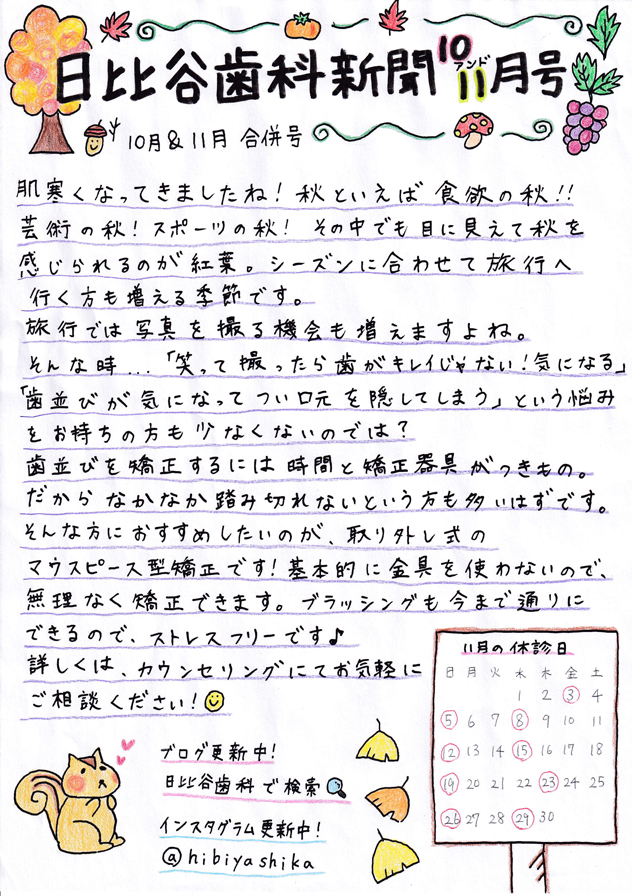 日比谷歯科新聞10アンド11月号
10月&11月 合併号
肌寒くなってきましたね!秋といえば 食欲の秋!!
芸術の秋!スポーツの秋! その中でも目に見えて秋を
感じられるのが紅葉。シーズンに合わせて旅行へ
行く方も増える季節です。
旅行では写真を撮る機会も増えますよね。
そんな時...「笑って撮ったら歯がキレイじゃない!気になる」
「歯並びが気になってつい口元を隠してしまう」という悩み
をお持ちの方も少なくないのでは?
歯並びを矯正するには時間と矯正器具がつきもの。
だからなかなか踏み切れないという方も多いはずです。
そんな方におすすめしたいのが、取り外し式の
マウスピース型矯正です!基本的に金具を使わないので、
無理なく矯正できます。ブラッシングも今まで通りに
できるので、ストレスフリーです♪
詳しくは、カウンセリングにてお気軽に
ご相談ください!
11月の休診日
日 月 火 水 木 金 土
1 2 3 4
5 6 7 8 9 10 11
12 13 14 15 16 17 18
19 20 21 22 23 24 25
26 27 28 29 30
ブログ更新中!
日比谷歯科で検索
インスタグラム更新中!
@hibiyashika